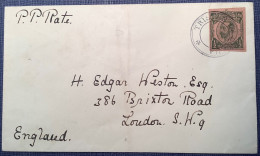 P.P. Rate.
H. Edgar Weston. Esq.
386 Brixton Road
London S.W.9
England.